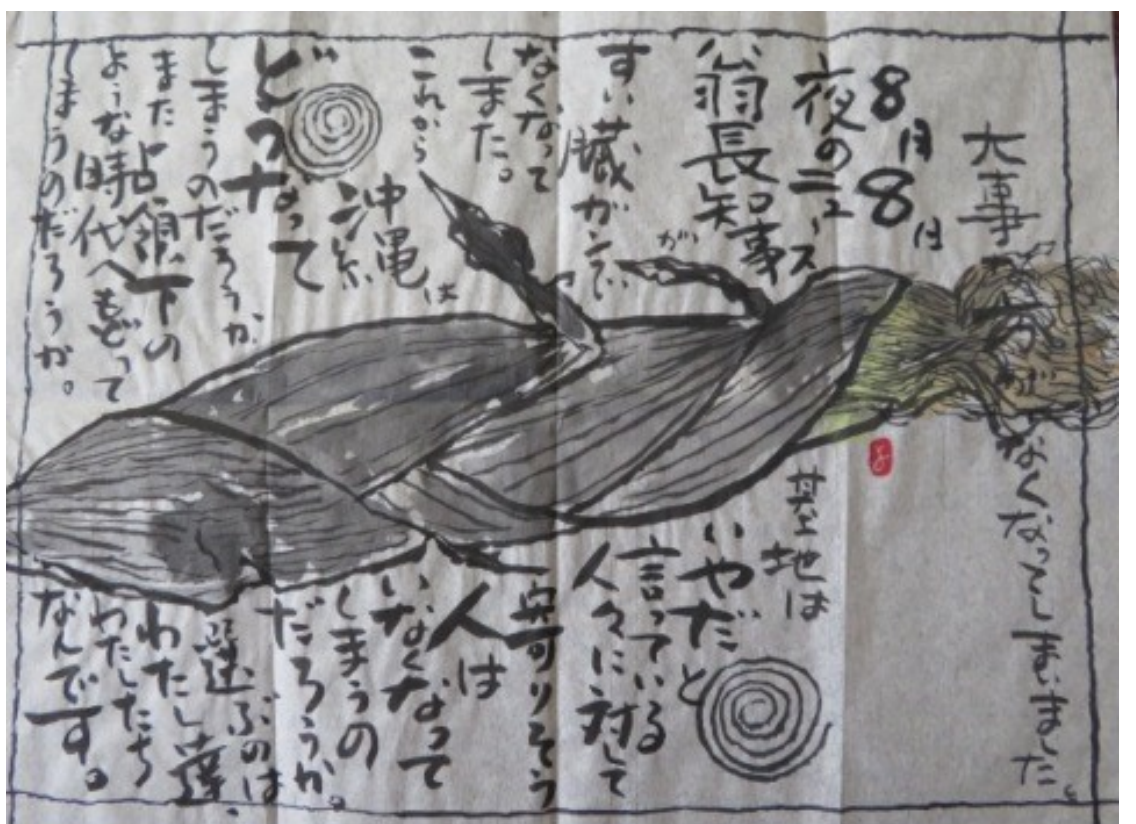 大事な方が
なくなってしまいました。
8月8日
夜のニュース
翁長知事が
すい臓ガンで
なくなって
しまった。
これから
沖縄は
どうなって
しまうのだろうか。
また占領下の
ような時代へもどって
しまうのだろうか。
基地は
いやだと
言っている
人々に対して
寄りそう
人は
いなくなって
しまうの
だろうか。
選ぶのは
わたし達、
わたしたち
なんです。